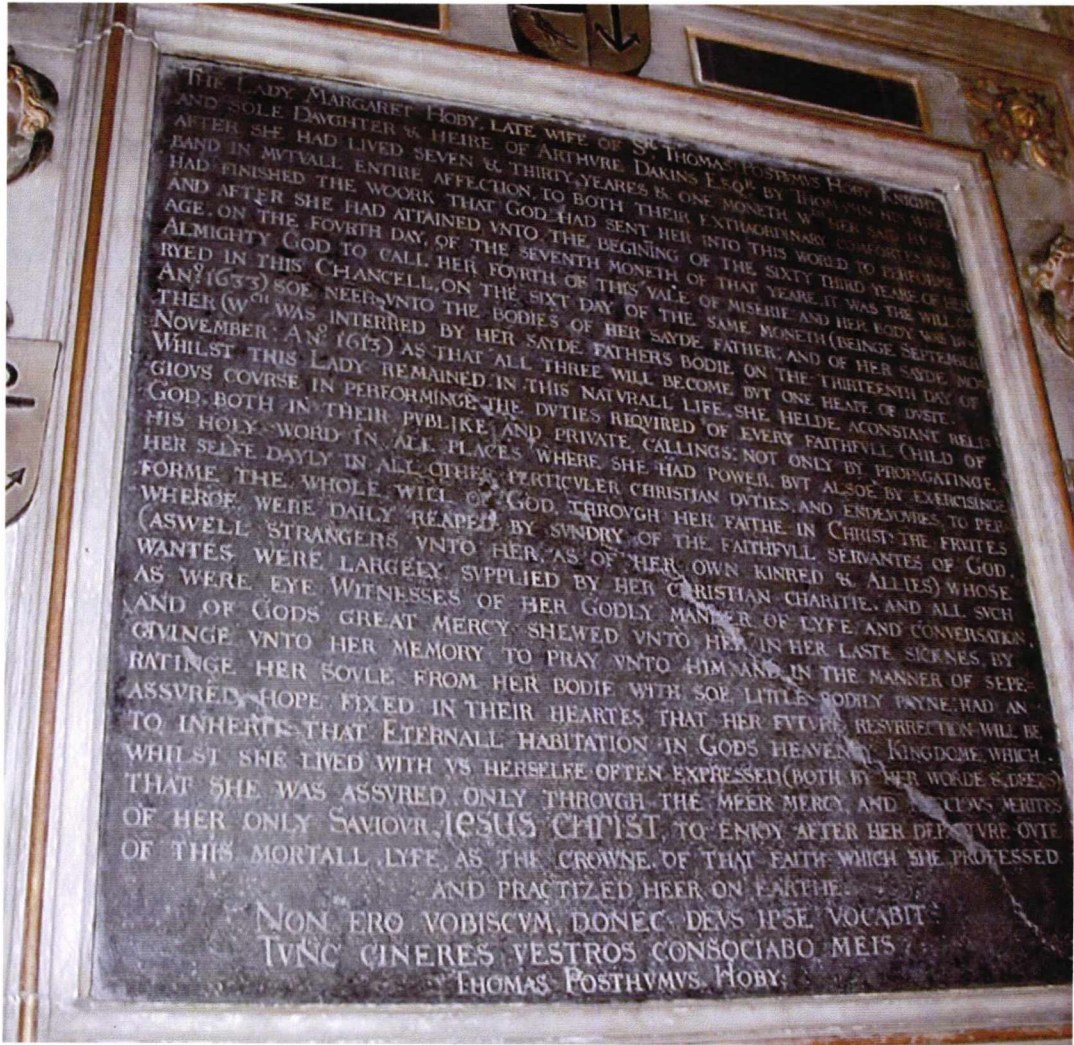 THE LADY MARGARET HOBY, LATE WIFE OF Sᴿ THOMAS POSTHUMUS HOBY KNIGHT
AND SOLE DAVGHTER & HEIRE OF ARTHVRE DAKINS ESQᴿ BY THOMASIN HIS WIFE
AFTER SHE HAD LIVED SEVEN & THIRTY YEARES & ONE MONETH Wᵀᴴ HER SAID HVS=
BAND IN MVTVALL ENTIRE AFFECTION, TO BOTH THEIR EXTRAORDINARY COMFORTES, AND
HAD FINISHED THE WOORK THAT GOD HAD SENT HER INTO THIS WORLD TO PERFORME,
AND AFTER SHE HAD ATTAINED VNTO THE BEGINING OF THE SIXTY THIRD YEARE OF HER
AGE, ON THE FOVRTH DAY OF THE SEVENTH MONETH OF THAT YEARE, IT WAS THE WILL OF
ALMIGHTY GOD TO CALL HER FOVRTH OF THIS VALE OF MISERIE AND HER BODY WAS BV=
RYED IN THIS CHANCELL, ON THE SIXT DAY OF THE SAME MONETH (BEINGE SEPTEMBER
ANº 1633) SOE NEER VNTO THE BODIES OF HER SAYDE FATHER, AND OF HER SAYDE MO=
THER (Wᶜᴴ WAS INTERRED BY HER SAYDE FATHERS BODIE ON THE THIRTEENTH DAY OF
NOVEMBER ANº 1613) AS THAT ALL THREE WILL BECOME BVT ONE HEAPE OF DVSTE.
WHILST THIS LADY REMAINED IN THIS NATVRALL LIFE, SHE HELDE ACONSTANT RELI=
GIOVS COVRSE IN PERFORMINGE THE DVTIES REQVIRED OF EVERY FAITHFVLL CHILD OF
GOD, BOTH IN THEIR PVBLIKE AND PRIVATE CALLINGS: NOT ONLY BY PROPAGATINGE
HIS HOLY WORD IN ALL PLACES WHERE SHE HAD POWER, BVT ALSOE BY EXERCISINGE
HER SELFE DAYLY IN ALL OTHER PERTICVLER CHRISTIAN DVTIES AND ENDEVOVRES, TO PER=
FORME THE WHOLE WILL OF GOD THROVGH HER FAITHE IN CHRIST: THE FRVITES
WHEROF WERE DAILY REAPED BY SVNDRY OF THE FAITHFVLL SERVANTES OF GOD,
(ASWELL STRANGERS VNTO HER, AS OF HER OWN KINRED & ALLIES) WHOSE
WANTES WERE LARGELY SVPPLIED BY HER CHRISTIAN CHARITIE. AND ALL SVCH
AS WERE EYE WITNESSES OF HER GODLY MANNER OF LYFE AND CONVERSATION,
AND OF GODS GREAT MERCY SHEWED VNTO HER IN HER LASTE SICKNES, BY
GIVINGE VNTO HER MEMORY TO PRAY VNTO HIM AND IN THE MANNER OF SEPE=
RATINGE HER SOVLE FROM HER BODIE WITH SOE LITTLE BODILY PAYNE, HAD AN
ASSVRED HOPE FIXED IN THEIR HEARTES THAT HER FVTVRE RESVRRECTION WILL BE
TO INHERITE THAT ETERNALL HABITATION IN GODS HEAVENLY KINGDOME WHICH
WHILST SHE LIVED WITH VS HERSELFE OFTEN EXPRESSED (BOTH BY HER WORDE & DEEDS)
THAT SHE WAS ASSVRED ONLY THROVGH THE MEER MERCY AND PRECIOVS MERITES
OF HER ONLY SAVIOVR, IESUS CHRIST, TO ENIOY AFTER HER DEPARTVRE OVTE
OF THIS MORTALL LYFE, AS THE CROWNE OF THAT FAITH WHICH SHE PROFESSED
AND PRACTIZED HEER ON EARTHE.
NON ERO VOBISCVM, DONEC DEVS IPSE VOCABIT
TVNC CINERES VESTROS CONSOCIABO MEIS
THOMAS POSTHVMVS HOBY.